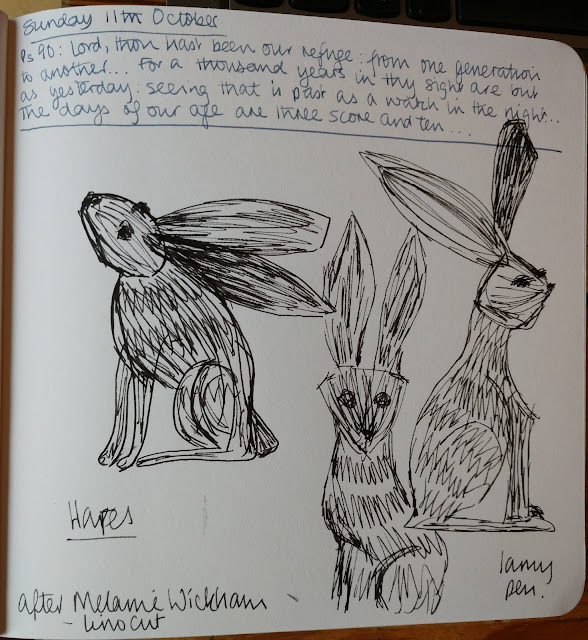 Sunday 11th October
Ps 90: Lord, thou hast been our refuge: from one generation
to another... For a thousand years in thy sight are but
as yesterday: seeing that is past as a watch in the night...
The days of our age are three score and ten...
Hares
lamy
pen.
after Melanie Wickham
- linocut